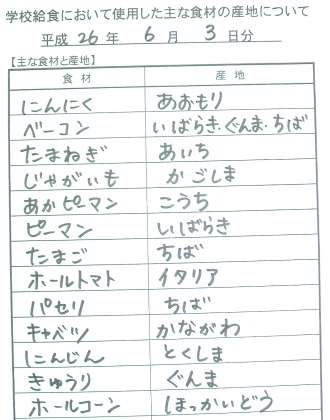 学校給食において使用した主な食材の産地について
平成 26 年 6 月 3 日分
【主な食材と産地】
食材 産地
にんにく あおもり
ベーコン いばらき・ぐんま・ちば
たまねぎ あいち
じゃがいも かごしま
あかピーマン こうち
ピーマン いばらき
たまご ちば
ホールトマト イタリア
パセリ ちば
キャベツ かながわ
にんじん とくしま
きゅうり ぐんま
ホールコーン ほっかいどう